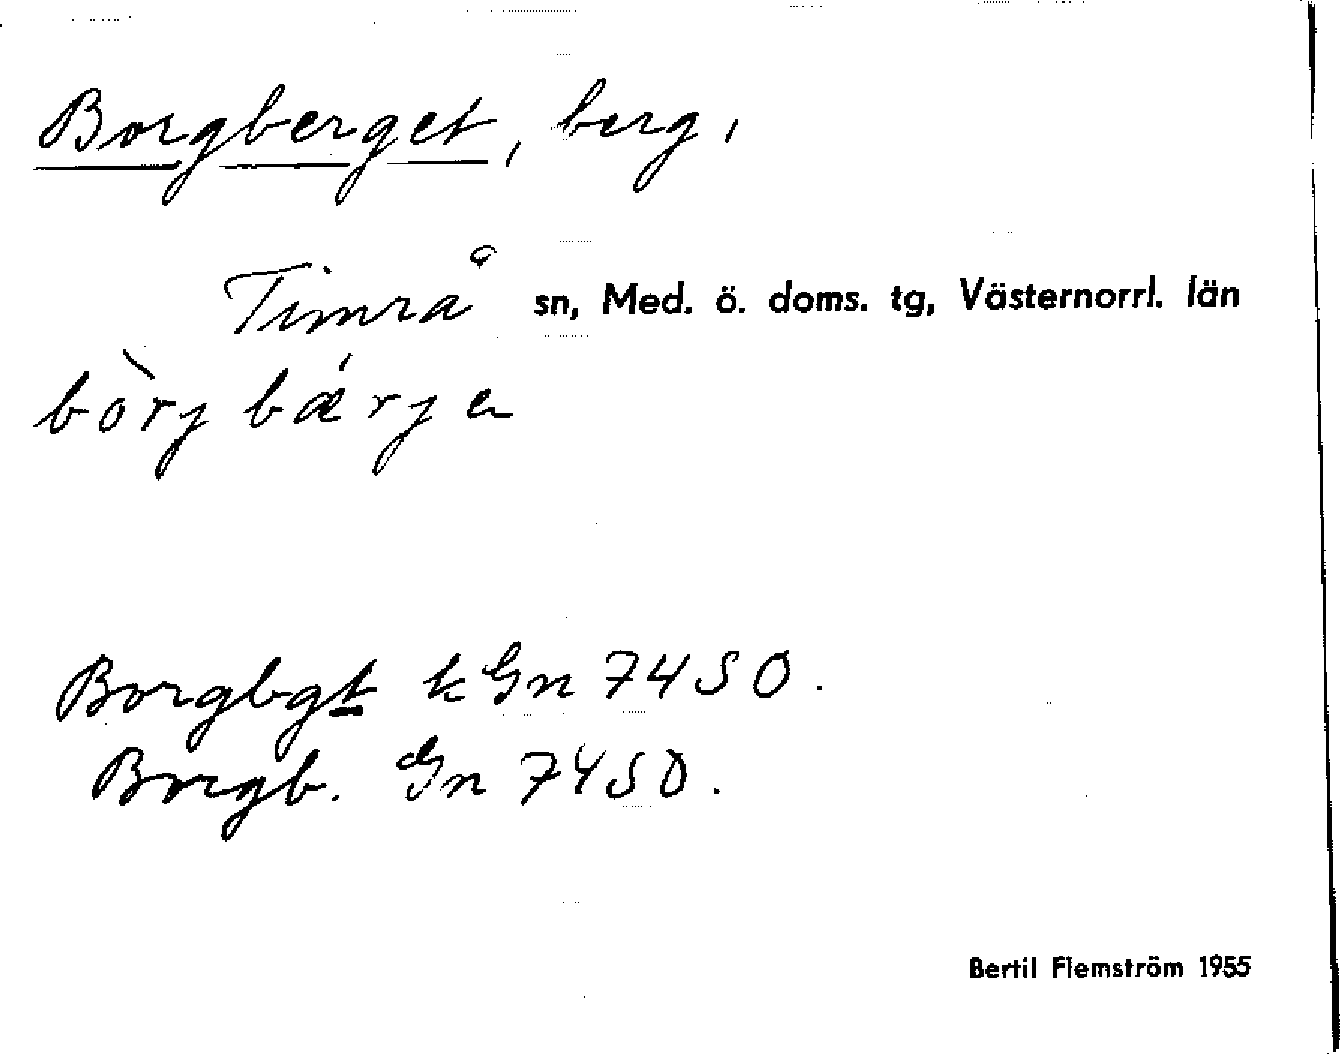 Borgberget, berg,
Timrå sn, Med. ö. doms. tg, Västernorrl. län
bòrj bǽrje
Borgbgt k Gn 74 SO.
Borgb. Gn 74 SO.
Bertil Flemström 1955